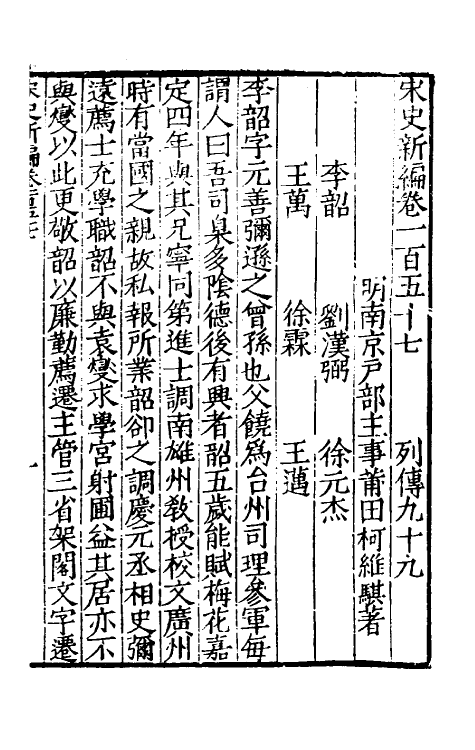 宋史新編卷一百五十七　列傳九十九
明南京戶部主事莆田柯維騏著
李韶　劉漢弼　徐元杰
王萬　徐霖　王邁
李韶字元善彌遜之曾孫也父饒爲台州司理參軍每
謂人曰吾司臬多陰德後有興者韶五歲能賦梅花嘉
定四年與其兄寧同第進士調南雄州敎授校文廣州
時有當國之親故私報所業韶卻之調慶元丞相史彌
遠薦士充學職韶不與袁燮求學宮射圃益其居亦不
與燮以此更敬韶以廉勤薦遷主管三省架閣文字遷
宋史新編卷一百五十七　一